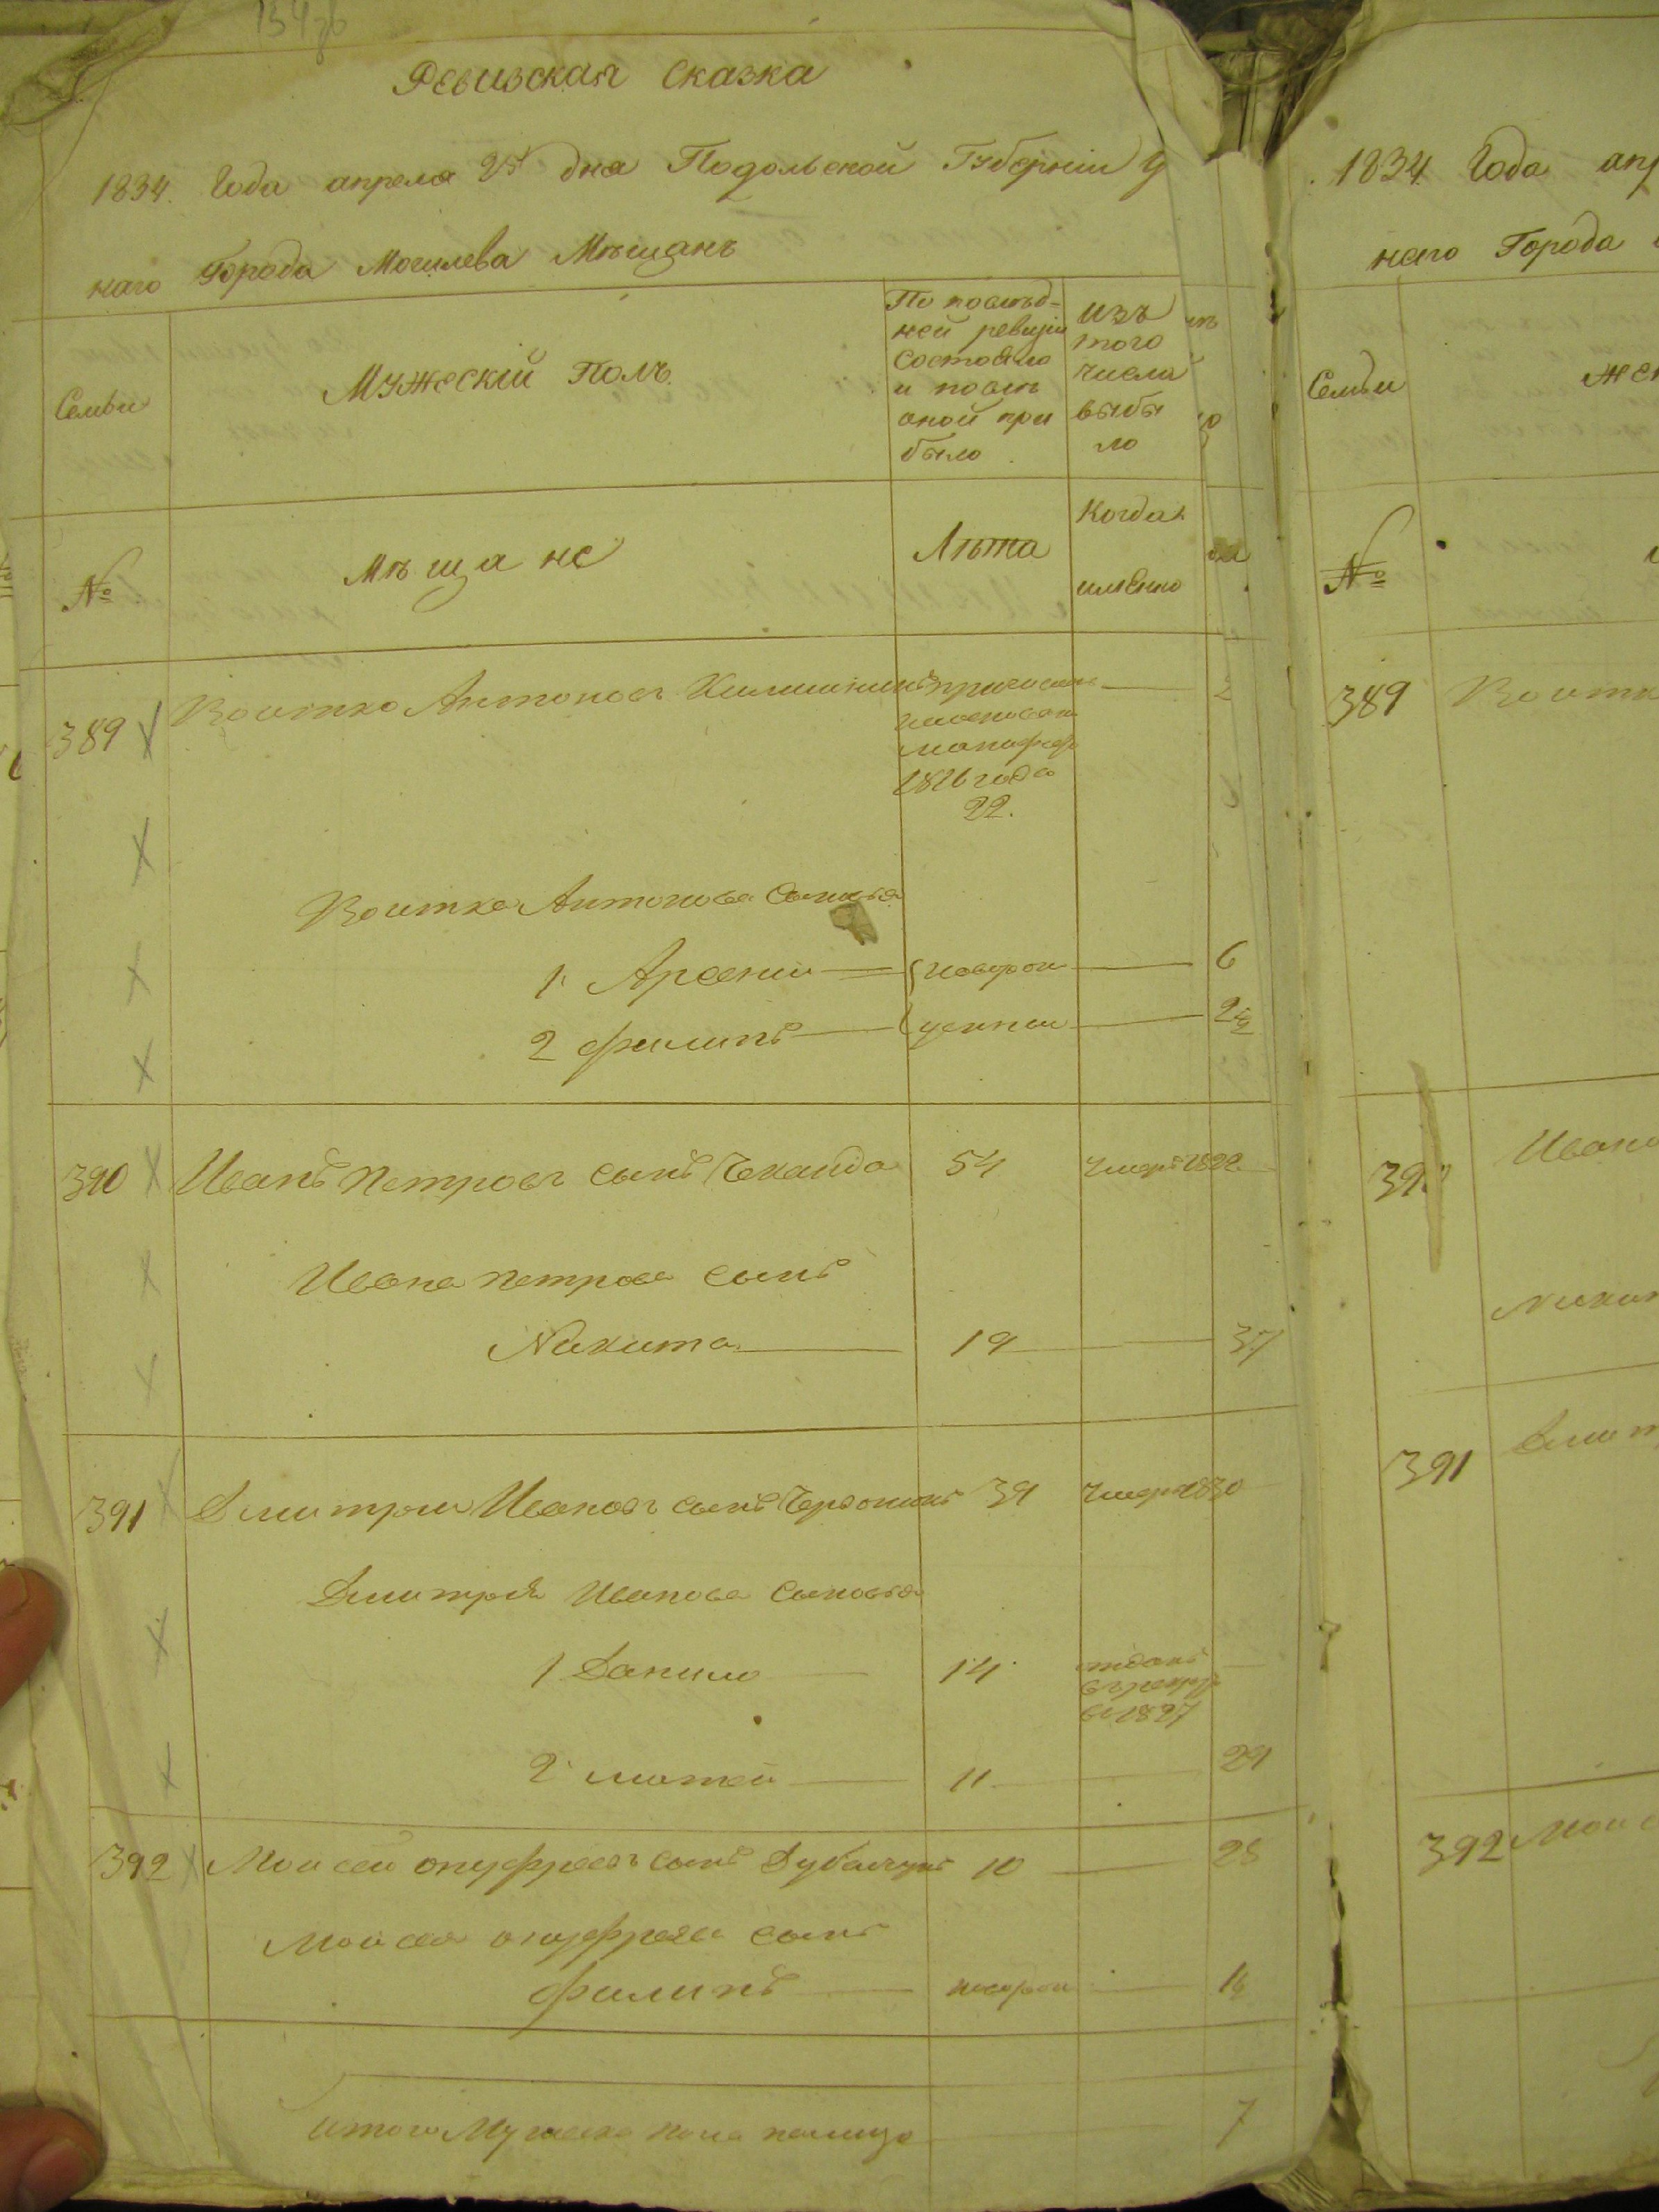 Ревизская сказка
1834. Года апреля 25 дня Подольской Губерніи У
наго Города Могилева Мѣщанъ
Семьи
Мужескій Полъ
По послѣд-
ней ревизіи
состояло
и послѣ
оной при
было
изъ
того
числа
выбы
ло
№
Мѣщане
Лѣта
Когда
именно
389
Воитко Антоновъ
причислен
1826 года
22.
Воитка Антонова сыновья
1. Арсеній
новорож
6
2 Филипъ
денные
2½
390
Иванъ Петровъ сынъ
54
Умеръ 1822
Ивана Петрова сынъ
Никита
19
37
391
Дмитрій Ивановъ сынъ
39
Умеръ 1830
Дмитрія Иванова сыновья
1 Данило
14
отданъ
въ рекруты
в 1827
2 Матей
11
29
392
Мойсей Онуфріевъ сынъ
10
28
Мойсея Онуфріева сынъ
Филипъ
новорож
Итого Мужеска пола налицо
7
1834 Года апр
наго Города
Семьи
Жен
№
389
Воитк
Ивана
Никит
391
Дмит
392
Мойс